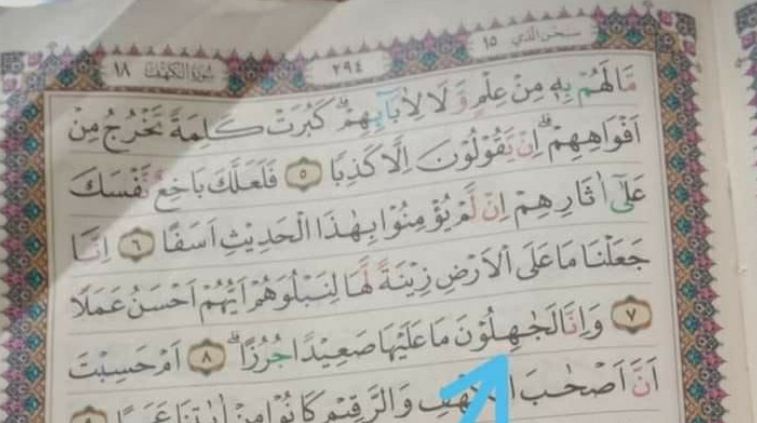 سبحن الذي ١٥ ٢٩٤ سورة الكهف ١٨
مَا لَهُمْ بِهٖ مِنْ عِلْمٍ وَّلَا لِاٰبَاۤىِٕهِمْۗ كَبُرَتْ كَلِمَةً تَخْرُجُ مِنْ
اَفْوَاهِهِمْۗ اِنْ يَّقُوْلُوْنَ اِلَّا كَذِبًا ٥ فَلَعَلَّكَ بَاخِعٌ نَّفْسَكَ
عَلٰٓى اٰثَارِهِمْ اِنْ لَّمْ يُؤْمِنُوْا بِهٰذَا الْحَدِيْثِ اَسَفًا ٦ اِنَّا
جَعَلْنَا مَا عَلَى الْاَرْضِ زِيْنَةً لَّهَا لِنَبْلُوَهُمْ اَيُّهُمْ اَحْسَنُ عَمَلًا
٧ وَاِنَّا لَجٰهِلُوْنَ مَا عَلَيْهَا صَعِيْدًا جُرُزًاۗ ٨ اَمْ حَسِبْتَ
اَنَّ اَصْحٰبَ وَالرَّقِيْمِ كَانُوْا مِنْ اٰيٰتِنَا